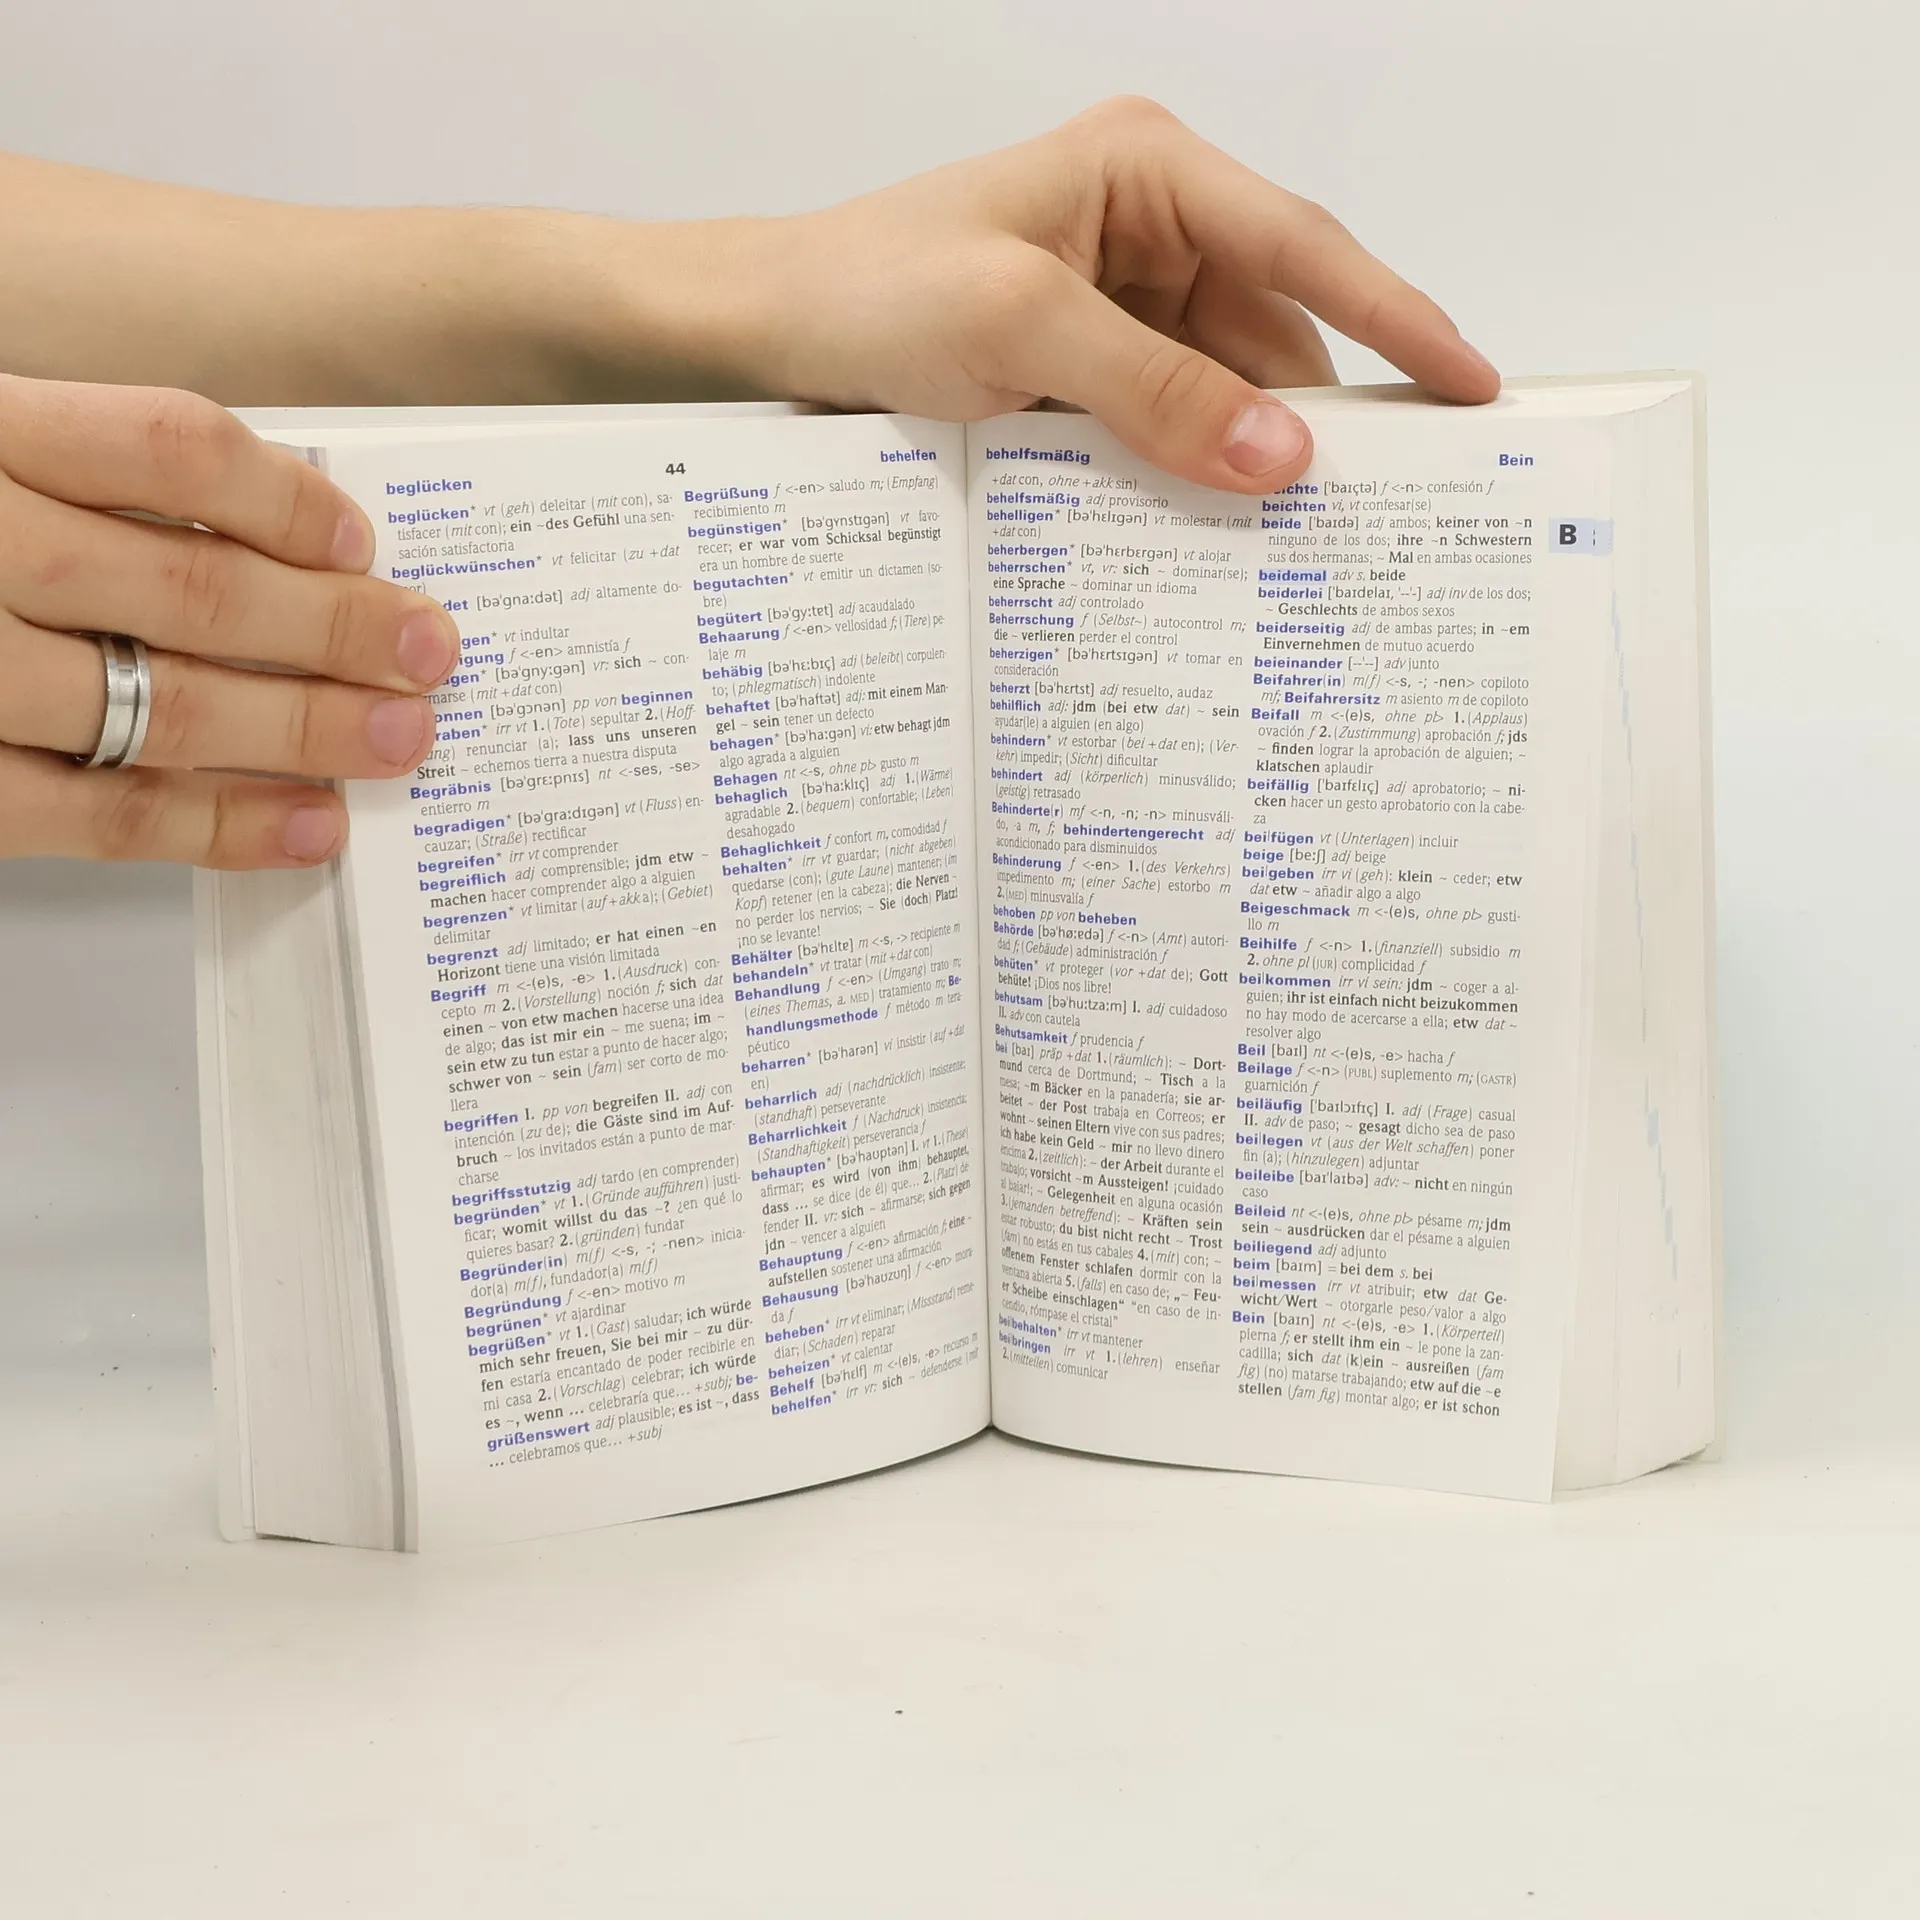 beglücken
44
behelfen
beglücken* vt (geh) deleitar (mit con), sa-
tisfacer (mit con); ein ~des Gefühl una sen-
sación satisfactoria
beglückwünschen* vt felicitar (zu +dat
det [bəˈgnaːdət] adj altamente do-
gen* vt indultar
igung f <-en> amnistía f
gen* [bəˈgnyːgən] vr: sich ~ con-
marse (mit +dat con)
onnen [bəˈgɔnən] pp von beginnen
raben* irr vt 1. (Tote) sepultar 2. (Hoff-
ung) renunciar (a); lass uns unseren
Streit ~ echemos tierra a nuestra disputa
Begräbnis [bəˈgrɛːpnɪs] nt <-ses, -se>
entierro m
begradigen* [bəˈgraːdɪgən] vt (Fluss) en-
cauzar; (Straße) rectificar
begreifen* irr vt comprender
begreiflich adj comprensible; jdm etw ~
machen hacer comprender algo a alguien
begrenzen* vt limitar (auf +akk a); (Gebiet)
delimitar
begrenzt adj limitado; er hat einen ~en
Horizont tiene una visión limitada
Begriff m <-(e)s, -e> 1. (Ausdruck) con-
cepto m 2. (Vorstellung) noción f; sich dat
einen ~ von etw machen hacerse una idea
de algo; das ist mir ein ~ me suena; im ~
sein etw zu tun estar a punto de hacer algo;
schwer von ~ sein (fam) ser corto de mo-
llera
begriffen I. pp von begreifen II. adj con
intención (zu de); die Gäste sind im Auf-
bruch ~ los invitados están a punto de mar-
charse
begriffsstutzig adj tardo (en comprender)
begründen* vt 1. (Gründe aufführen) justi-
ficar; womit willst du das ~? ¿en qué lo
quieres basar? 2. (gründen) fundar
Begründer(in) m(f) <-s, -; -nen> inicia-
dor(a) m(f), fundador(a) m(f)
Begründung f <-en> motivo m
begrünen* vt ajardinar
begrüßen* vt 1. (Gast) saludar; ich würde
mich sehr freuen, Sie bei mir ~ zu dür-
fen estaría encantado de poder recibirle en
mi casa 2. (Vorschlag) celebrar; ich würde
es ~, wenn ... celebraría que... +subj; be-
grüßenswert adj plausible; es ist ~, dass
... celebramos que... +subj
Begrüßung f <-en> saludo m; (Empfang)
recibimiento m
begünstigen* [bəˈgʏnstɪgən] vt favo-
recer; er war vom Schicksal begünstigt
era un hombre de suerte
begutachten* vt emitir un dictamen (so-
bre)
begütert [bəˈgyːtɐt] adj acaudalado
Behaarung f <-en> vellosidad f; (Tiere) pe-
laje m
behäbig [bəˈhɛːbɪç] adj (beleibt) corpulen-
to; (phlegmatisch) indolente
behaftet [bəˈhaftət] adj: mit einem Man-
gel ~ sein tener un defecto
behagen* [bəˈhaːgən] vi: etw behagt jdm
algo agrada a alguien
Behagen nt <-s, ohne pl> gusto m
behaglich [bəˈhaːklɪç] adj 1. (Wärme)
agradable 2. (bequem) confortable; (Leben)
desahogado
Behaglichkeit f confort m, comodidad f
behalten* irr vt guardar; (nicht abgeben)
quedarse (con); (gute Laune) mantener; (im
Kopf) retener (en la cabeza); die Nerven ~
no perder los nervios; ~ Sie (doch) Platz!
¡no se levante!
Behälter [bəˈhɛltɐ] m <-s, -> recipiente m
behandeln* vt tratar (mit +dat con)
Behandlung f <-en> (Umgang) trato m;
(eines Themas, a. MED) tratamiento m; Be-
handlungsmethode f método m tera-
péutico
beharren* [bəˈharən] vi insistir (auf +dat
en)
beharrlich adj (nachdrücklich) insistente;
(standhaft) perseverante
Beharrlichkeit f (Nachdruck) insistencia;
(Standhaftigkeit) perseverancia f
behaupten* [bəˈhaʊptən] I. vt 1. (These)
afirmar; es wird (von ihm) behauptet,
dass ... se dice (de él) que... 2. (Platz) de-
fender II. vr: sich ~ afirmarse; sich gegen
jdn ~ vencer a alguien
Behauptung f <-en> afirmación f; eine ~
aufstellen sostener una afirmación
Behausung [bəˈhaʊzʊŋ] f <-en> mora-
da f
beheben* irr vt eliminar; (Missstand) reme-
diar; (Schaden) reparar
beheizen* vt calentar
Behelf [bəˈhɛlf] m <-(e)s, -e> recurso m
behelfen* irr vr: sich ~ defenderse (mit
behelfsmäßig
Bein
+dat con, ohne +akk sin)
behelfsmäßig adj provisorio
behelligen* [bəˈhɛlɪgən] vt molestar (mit
+dat con)
beherbergen* [bəˈhɛrbɛrgən] vt alojar
beherrschen* vt, vr: sich ~ dominar(se);
eine Sprache ~ dominar un idioma
beherrscht adj controlado
Beherrschung f (Selbst~) autocontrol m;
die ~ verlieren perder el control
beherzigen* [bəˈhɛrtsɪgən] vt tomar en
consideración
beherzt [bəˈhɛrtst] adj resuelto, audaz
behilflich adj: jdm (bei etw dat) ~ sein
ayudar(le) a alguien (en algo)
behindern* vt estorbar (bei +dat en); (Ver-
kehr) impedir; (Sicht) dificultar
behindert adj (körperlich) minusválido;
(geistig) retrasado
Behinderte(r) mf <-n, -n; -n> minusváli-
do, -a m, f; behindertengerecht adj
acondicionado para disminuidos
Behinderung f <-en> 1. (des Verkehrs)
impedimento m; (einer Sache) estorbo m
2. (MED) minusvalía f
behoben pp von beheben
Behörde [bəˈhøːɐdə] f <-n> (Amt) autori-
dad f; (Gebäude) administración f
behüten* vt proteger (vor +dat de); Gott
behüte! ¡Dios nos libre!
behutsam [bəˈhuːtzaːm] I. adj cuidadoso
II. adv con cautela
Behutsamkeit f prudencia f
bei [baɪ] präp +dat 1. (räumlich): ~ Dort-
mund cerca de Dortmund; ~ Tisch a la
mesa; ~m Bäcker en la panadería; sie ar-
beitet ~ der Post trabaja en Correos; er
wohnt ~ seinen Eltern vive con sus padres;
ich habe kein Geld ~ mir no llevo dinero
encima 2. (zeitlich): ~ der Arbeit durante el
trabajo; vorsicht ~m Aussteigen! ¡cuidado
al bajar!; ~ Gelegenheit en alguna ocasión
3. (jemanden betreffend): ~ Kräften sein
estar robusto; du bist nicht recht ~ Trost
(fam) no estás en tus cabales 4. (mit) con; ~
offenem Fenster schlafen dormir con la
ventana abierta 5. (falls) en caso de; „~ Feu-
er Scheibe einschlagen“ "en caso de in-
cendio, rómpase el cristal"
bei|behalten* irr vt mantener
bei|bringen irr vt 1. (lehren) enseñar
2. (mitteilen) comunicar
ichte [ˈbaɪçtə] f <-n> confesión f
beichten vi, vt confesar(se)
beide [ˈbaɪdə] adj ambos; keiner von ~n
ninguno de los dos; ihre ~n Schwestern
sus dos hermanas; ~ Mal en ambas ocasiones
beidemal adv s. beide
beiderlei [ˈbaɪdɐlaɪ, '--'-] adj inv de los dos;
~ Geschlechts de ambos sexos
beiderseitig adj de ambas partes; in ~em
Einvernehmen de mutuo acuerdo
beieinander [--'--] adv junto
Beifahrer(in) m(f) <-s, -; -nen> copiloto
mf; Beifahrersitz m asiento m de copiloto
Beifall m <-(e)s, ohne pl> 1. (Applaus)
ovación f 2. (Zustimmung) aprobación f; jds
~ finden lograr la aprobación de alguien; ~
klatschen aplaudir
beifällig [ˈbaɪfɛlɪç] adj aprobatorio; ~ ni-
cken hacer un gesto aprobatorio con la cabe-
za
bei|fügen vt (Unterlagen) incluir
beige [beːʃ] adj beige
bei|geben irr vi (geh): klein ~ ceder; etw
dat etw ~ añadir algo a algo
Beigeschmack m <-(e)s, ohne pl> gusti-
llo m
Beihilfe f <-n> 1. (finanziell) subsidio m
2. ohne pl (JUR) complicidad f
bei|kommen irr vi sein: jdm ~ coger a al-
guien; ihr ist einfach nicht beizukommen
no hay modo de acercarse a ella; etw dat ~
resolver algo
Beil [baɪl] nt <-(e)s, -e> hacha f
Beilage f <-n> (PUBL) suplemento m; (GASTR)
guarnición f
beiläufig [ˈbaɪlɔɪfɪç] I. adj (Frage) casual
II. adv de paso; ~ gesagt dicho sea de paso
bei|legen vt (aus der Welt schaffen) poner
fin (a); (hinzulegen) adjuntar
beileibe [baɪˈlaɪbə] adv: ~ nicht en ningún
caso
Beileid nt <-(e)s, ohne pl> pésame m; jdm
sein ~ ausdrücken dar el pésame a alguien
beiliegend adj adjunto
beim [baɪm] = bei dem s. bei
bei|messen irr vt atribuir; etw dat Ge-
wicht/Wert ~ otorgarle peso/valor a algo
Bein [baɪn] nt <-(e)s, -e> 1. (Körperteil)
pierna f; er stellt ihm ein ~ le pone la zan-
cadilla; sich dat (k)ein ~ ausreißen (fam
fig) (no) matarse trabajando; etw auf die ~e
stellen (fam fig) montar algo; er ist schon
B